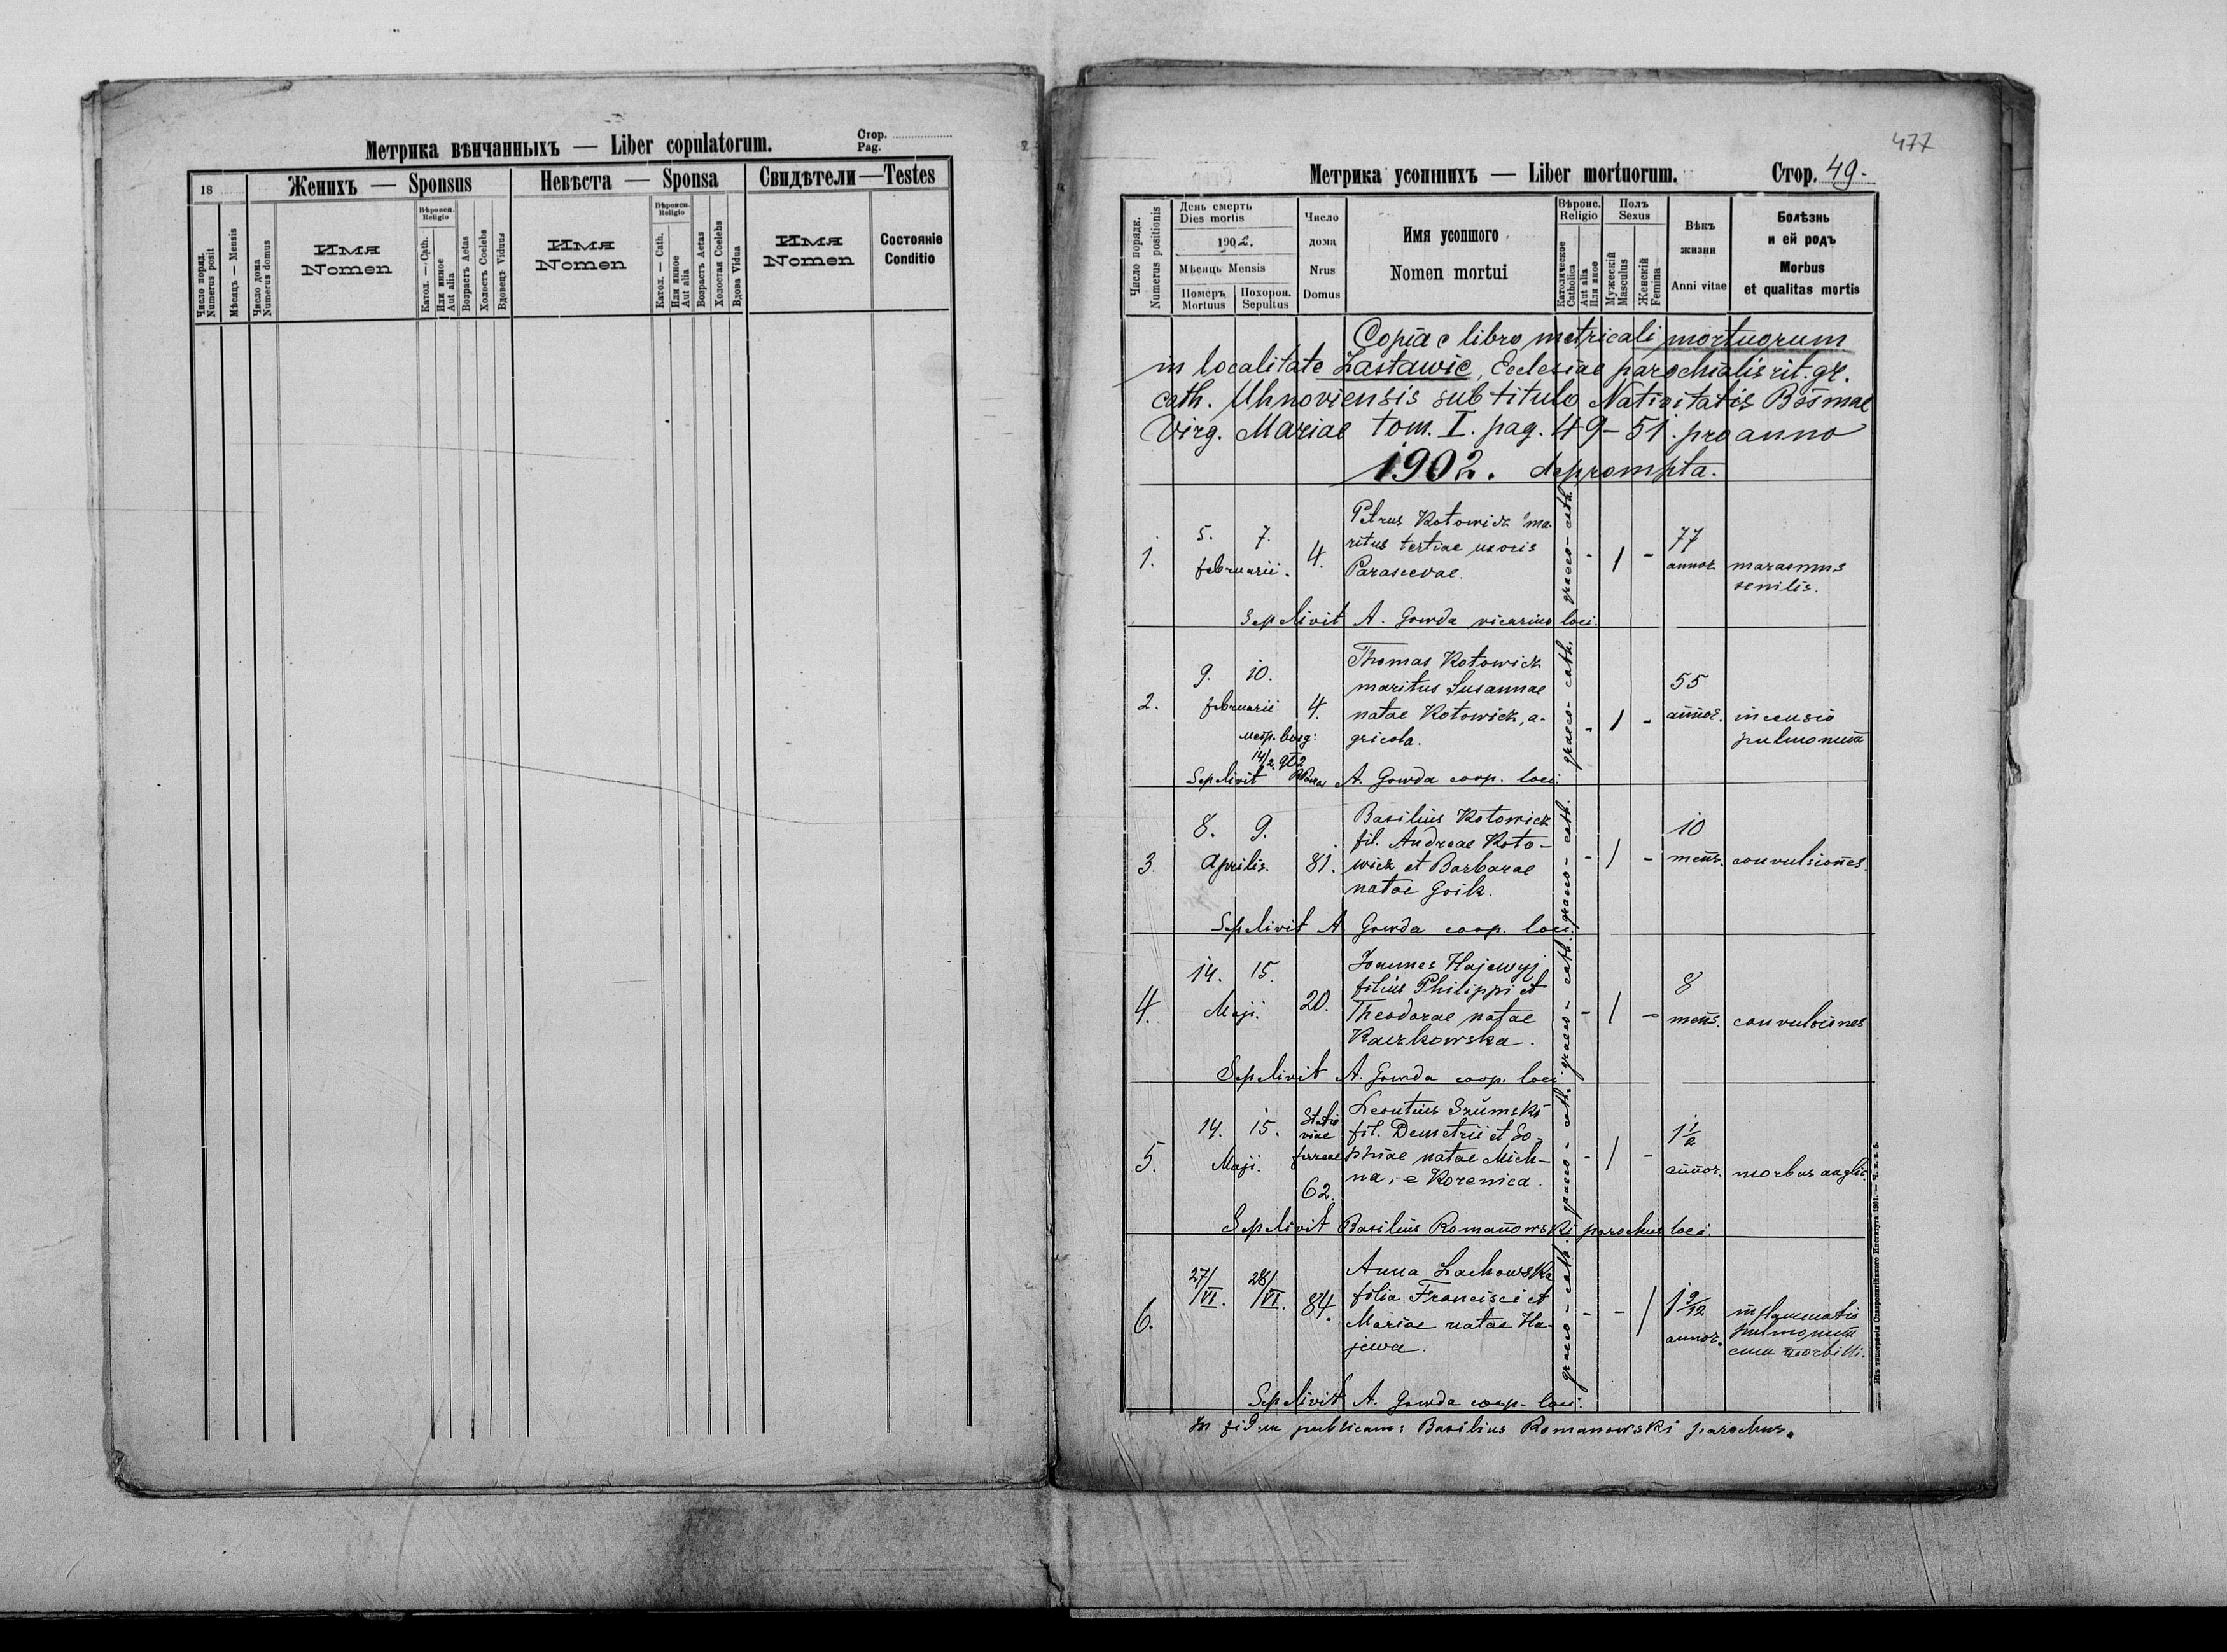 Метрика вѣнчанныхъ — Liber copulatorum.
Стор.
Pag.
18
Женихъ — Sponsus
Невѣста — Sponsa
Свидѣтели—Testes
Число поряд.
Numerus posit
Мѣсяцъ — Mensis
Число дома
Numerus domus
Имя
Nomen
Вѣроисп.
Religio
Катол. — Cath.
Или инное
Aut alia
Возрастъ Aetas
Холостъ Coelebs
Вдовецъ Viduus
Имя
Nomen
Вѣроисп.
Religio
Катол. — Cath.
Или инное
Aut alia
Возрастъ Aetas
Холостая Coelebs
Вдова Vidua
Имя
Nomen
Состояніе
Conditio
477
Метрика усопшихъ — Liber mortuorum.
Стор. 49.
Число порядк.
Numerus positionis
День смерть
Dies mortis
1902.
Мѣсяць Mensis
Померъ
Mortuus
Похорон.
Sepultus
Число
дома
Nrus
Domus
Имя усопшого
Nomen mortui
Вѣроис.
Religio
Католическое
Catholica
Aut alia
Или иное
Полъ
Sexus
Мужескій
Masculus
Женскій
Femina
Вѣкъ
жизни
Anni vitae
Болѣзнь
и ей родъ
Morbus
et qualitas mortis
Copia e libro metricali mortuorum
in localitate Zastawie, Ecclesiae parochialis rit. gr.
cath. Uhnoviensis sub titulo Nativitatis Bssmae
Virg. Mariae tom. I. pag. 49–51. pro anno
1902. deprompta.
1.
5. 7.
februarii.
4.
Petrus Kotowicz ma-
ritus tertiae uxoris
Parascevae.
graeco-cath.
- 1 -
77
annor.
marasmus
senilis.
Sepelivit A. Gowda vicarius loci.
2.
9. 10.
februarii
4.
Thomas Kotowicz
maritus Susannae
natae Kotowicz, a-
gricola.
graeco-cath.
- 1 -
55
annor.
incensio
pulmonum
14/2 902
Sepelivit A. Gowda coop. loci.
3.
8. 9.
Aprilis.
81.
Basilius Kotowicz
fil. Andreae Koto-
wicz et Barbarae
natae Goik.
graeco-cath.
- 1 -
10
mens.
convulsiones.
Sepelivit A. Gowda coop. loci.
4.
14. 15.
Maji.
20.
Joannes Hajewyj
filius Philippi et
Theodorae natae
Kaczkowska.
graeco-cath.
- 1 -
8
mens.
convulsiones
Sepelivit A. Gowda coop. loci
5.
14. 15.
Maji.
Statio
viae
ferreae
62.
Leontius Szumski
fil. Demetrii et So-
phiae natae Mich-
na, e Korenica.
graeco-cath.
- 1 -
1 1/2
annor.
morbus anglic.
Sepelivit Basilius Romanowski parochus loci.
6.
27/VI. 28/VI.
84.
Anna Lachowska
filia Francisci et
Mariae natae Ha-
jewa.
graeco-cath.
- - 1
1 9/12
annor.
inflammatio
pulmonum
cum morbilli.
Sepelivit A. Gowda coop. loci.
In fidem publicam: Basilius Romanowski parochus.
Изъ типографіи Ставропигійского Института 1901. — Ч. к. з. 5.